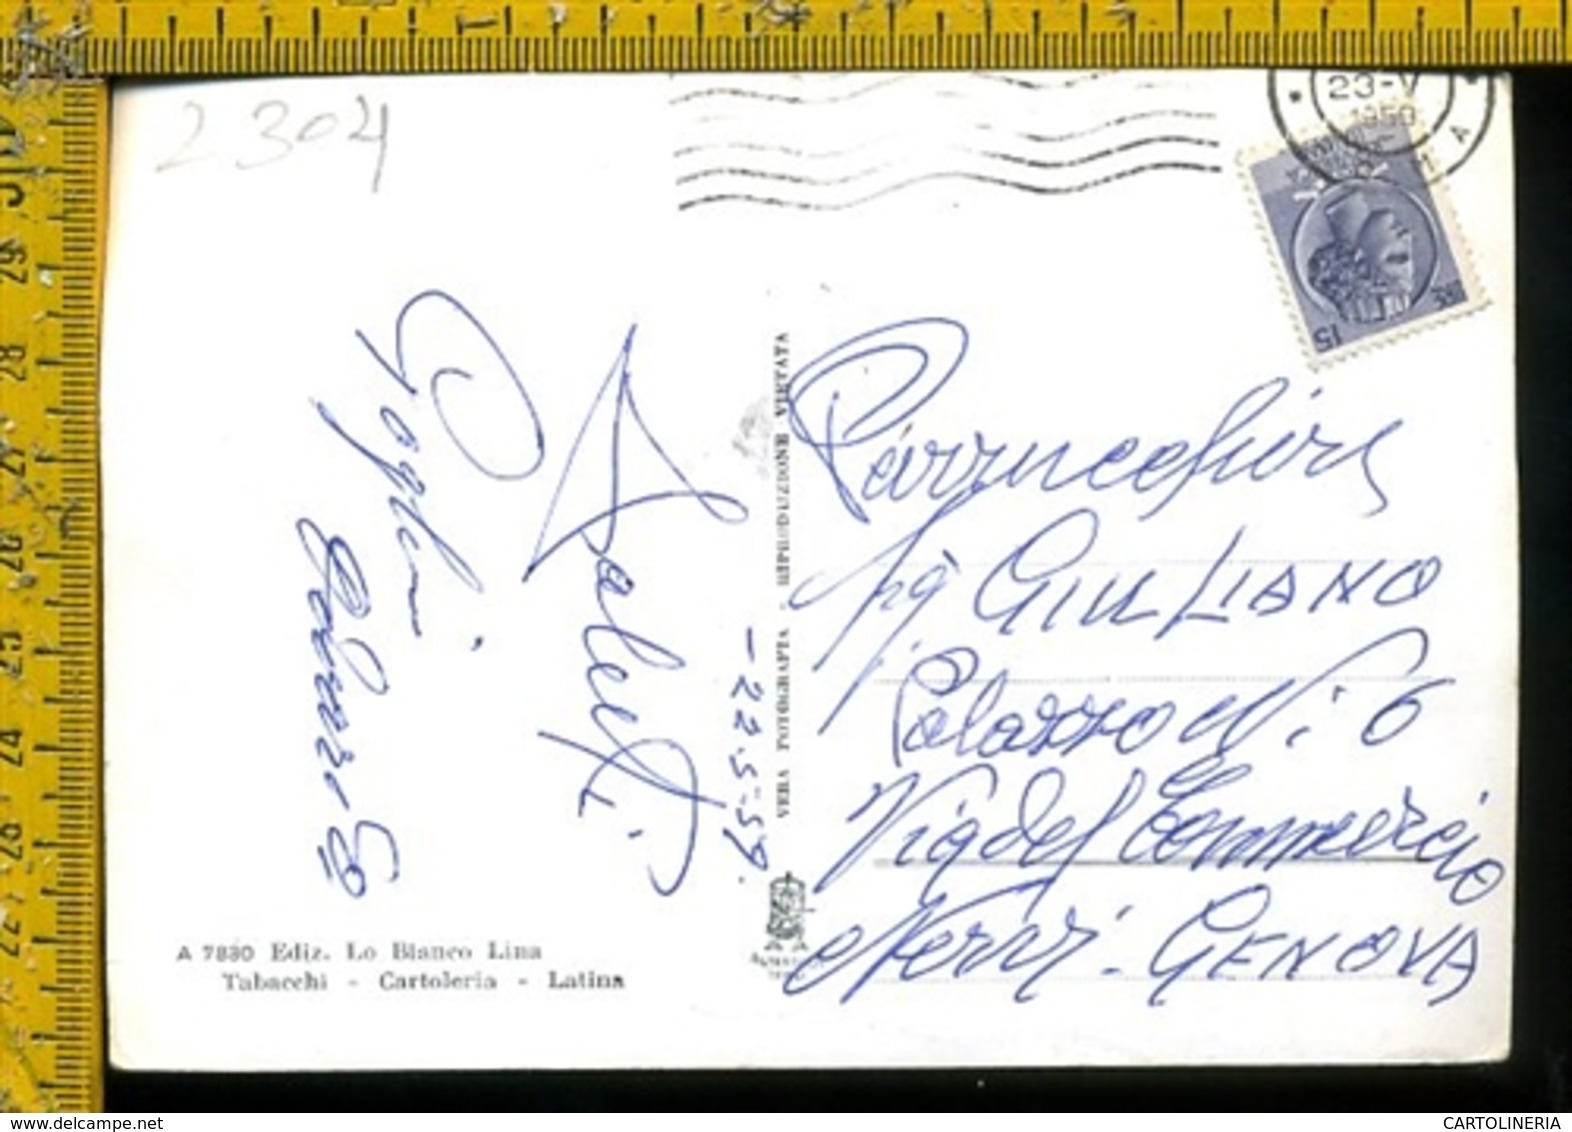 2304
23-V
1959
15
Saluti
- 22.5.59.
VERA FOTOGRAFIA - RIPRODUZIONE VIETATA
Parrucchiere
Sig GIULIANO
Palazzo N. 6
Via del Commercio
Nervi - GENOVA
A 7830 Ediz. Lo Bianco Lina
Tabacchi - Cartoleria - Latina
CARTOLINERIA